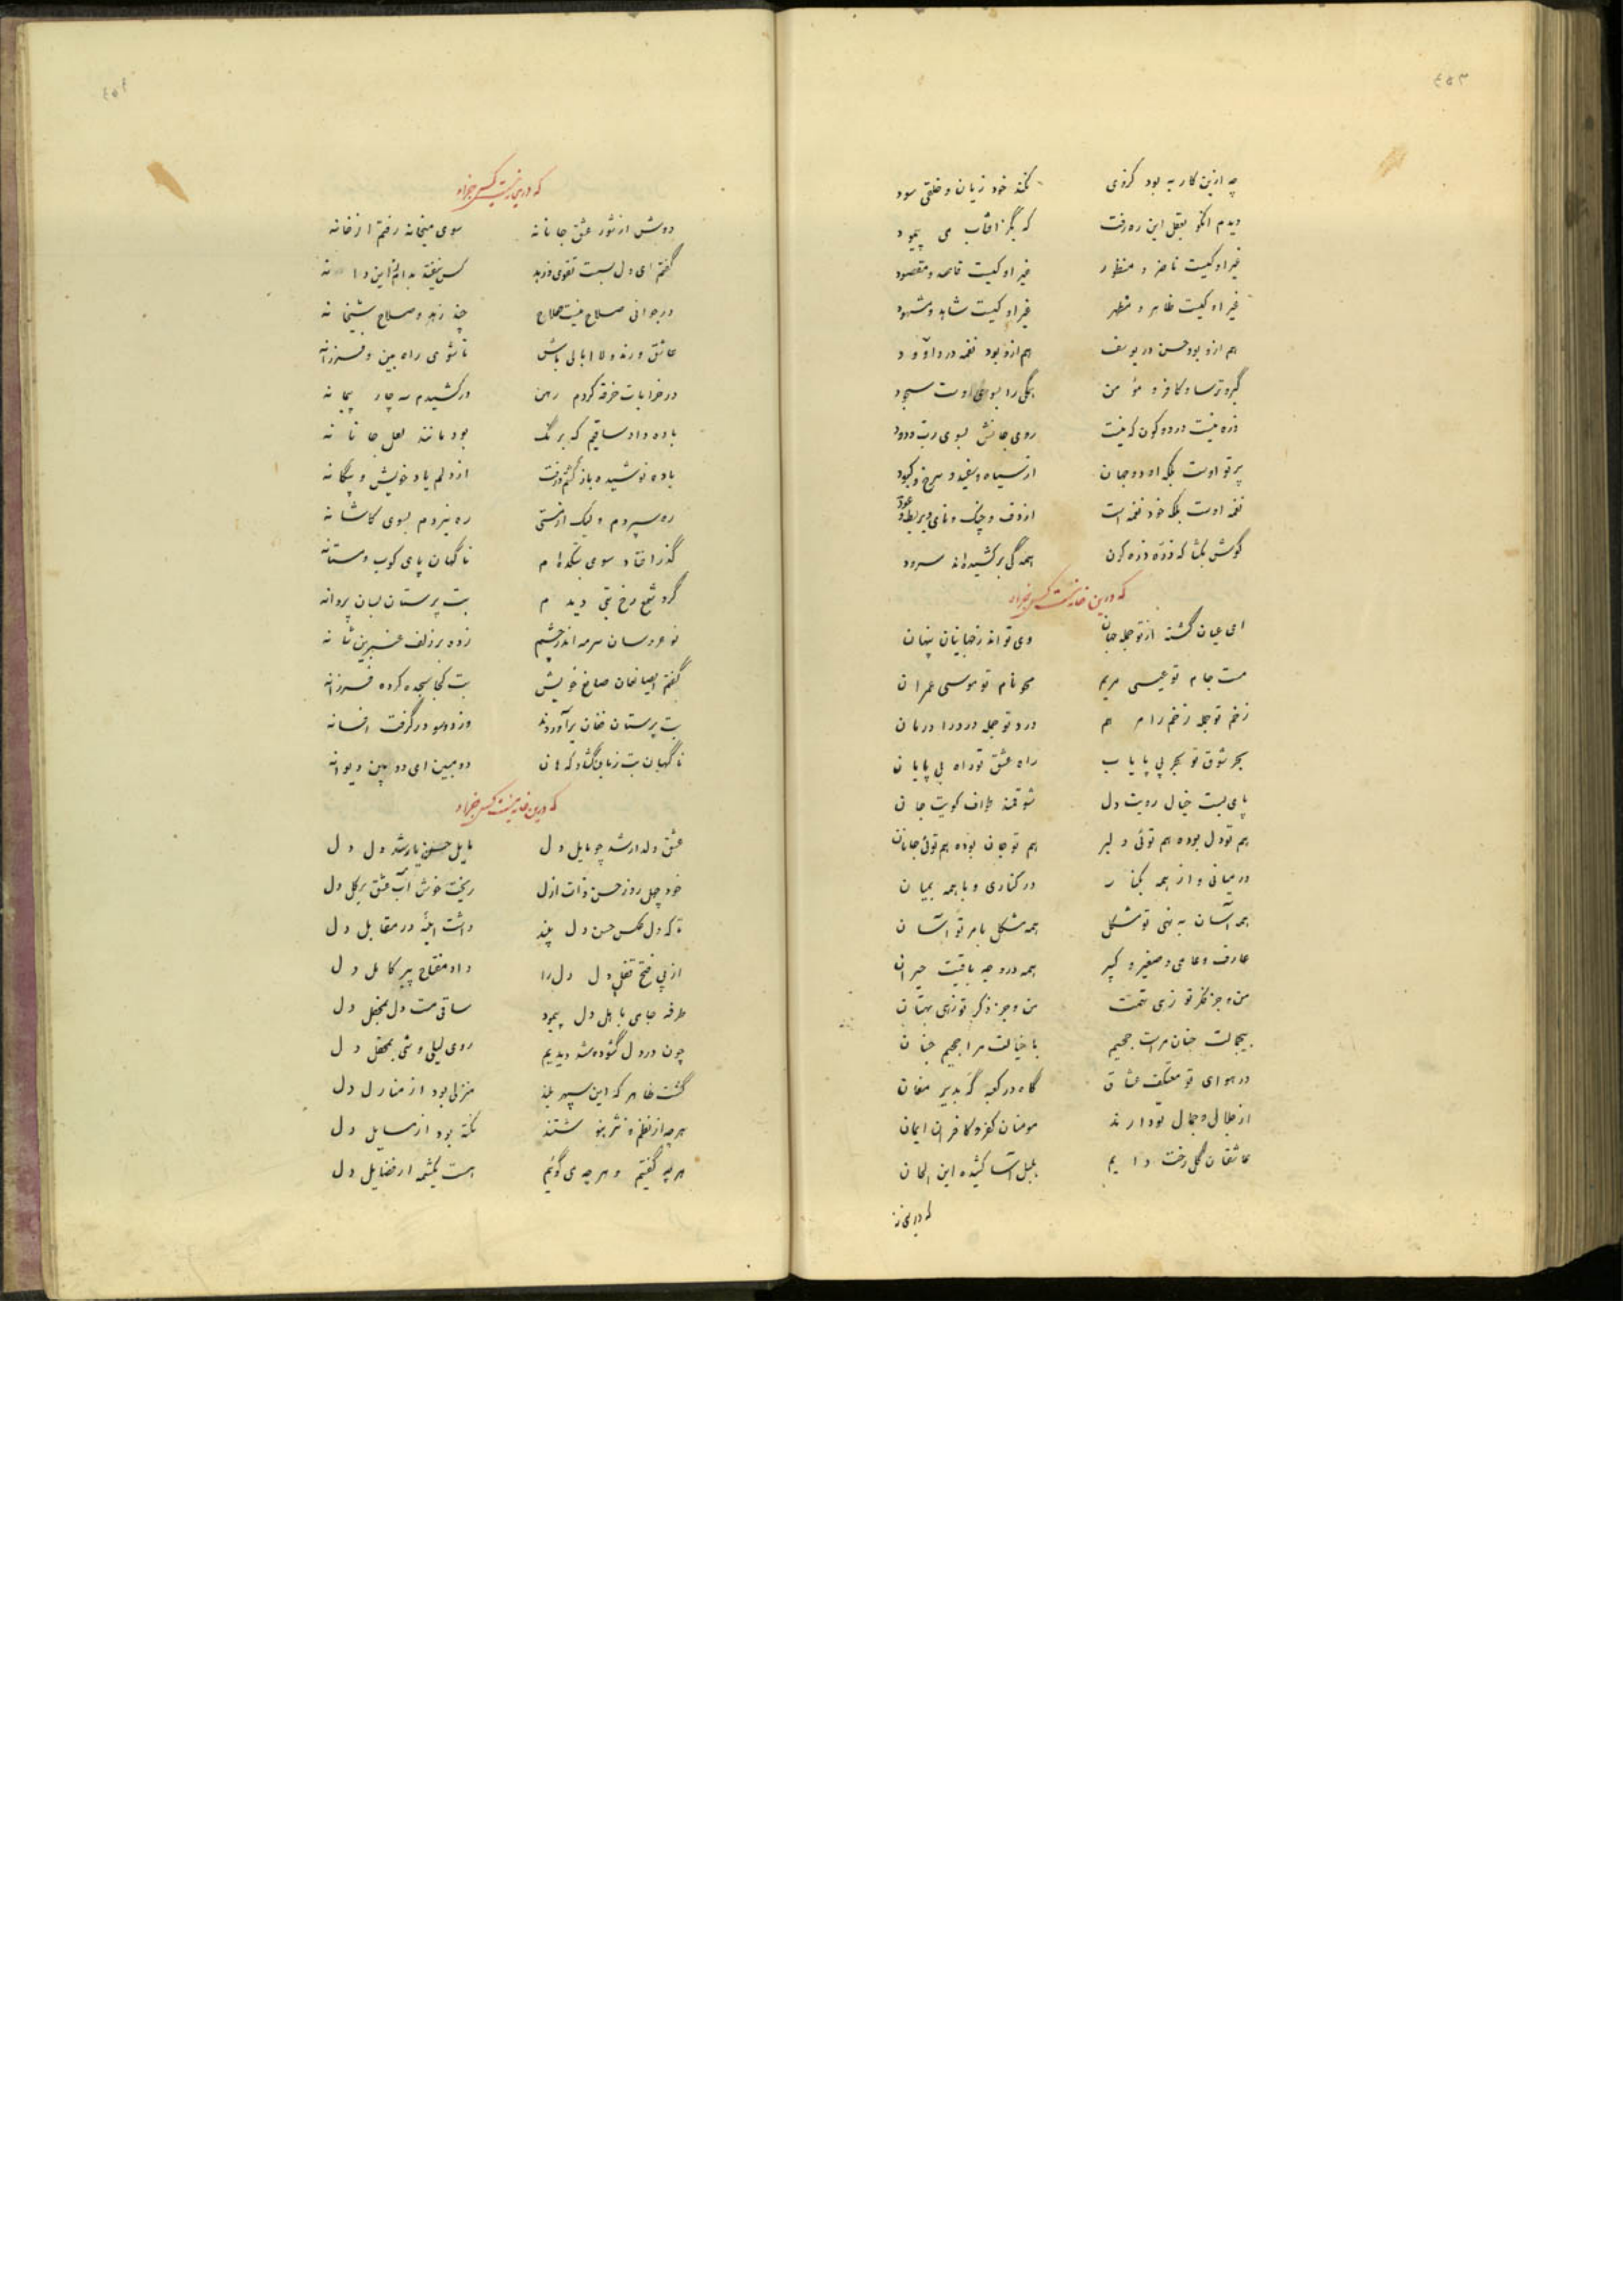 ٤٥٣
چه ازین کار به بود کردی نکند خود زیان و خلقی سود
دیدم انکو بعقل این ره رفت که بگز افتاب می پیمود
غیر او کیست ناضر و منظور غیر او کیست قاصد و مقصود
غیر او کیست ظاهر و مظهر غیر او کیست شاهد و مشهود
هم ازو بود حسن در یوسف هم ازو بود نغمه در داوود
گبر و ترسا و کافر و مؤمن همگی را بسوی اوست سجود
ذره نیست در دو کون که نیست روی جانش بسوی رب ودود
پرتو اوست بلکه او دو جهان از سیاه و سفید و سرخ و کبود
نغمه اوست بلکه خود نغمه است از دف و چنک و نای و بربط و عود
گوش بکشا که ذره ذره کون همه گی برکشیده‌اند سرود
که درین خانه نیست کس جز او
ای عیان گشته از تو جمله جهان وی تو اندر نهانیان پنهان
مست جام تو عیسی مریم محو نام تو موسی عمران
زخم تو جمله زخم را مرهم درد تو جمله درد را درمان
بحر شوق تو بحر بی پایاب راه عشق تو راه بی پایان
پای بست خیال رویت دل شوقمند طواف کویت جان
هم تو دل بوده هم توئی دلبر هم تو جان بوده هم توئی جانان
در میانی و از همه بکنار در کناری و با همه بمیان
همه آسان به نهی تو مشکل همه مشکل بامر تو آسان
عارف و عامی و صغیر و کبیر همه در وجه باقیت حیران
من و جز فکر تو زهی تهمت من و جز ذکر تو زهی بهتان
بیجمالت جنان مراست جحیم با خیالت مرا جحیم جنان
در هوای تو معتکف عشاق گاه در کعبه گه بدیر مغان
از جلال و جمال تو دارند مومنان کفر و کافران ایمان
عاشقان گل رخت دایم بلبل آسا کشیده این الحان
که درین
٤٥٤
که درین خانه نیست کس جز او
دوش از شور عشق جانانه سوی میخانه رفتم از خانه
گفتم ای دل بست تقوی و زهد کس نیفتد بدام این دانه
در جوانی صلاح نیست صلاح چند زهد و صلاح شیخانه
عاشق و رند و لاابالی باش تا شوی راه بین و فرزانه
در خرابات خرقه کردم رهن درکشیدم سه چار پیمانه
باده داد ساقیم که برنگ بود مانند لعل جانانه
باده نوشیده باز گشتم و رفت از دلم یاد خویش و بیگانه
ره سپردم ولیک از مستی ره نبردم بسوی کاشانه
گذر افتاد سوی بتکده‌ام ناگهان پای کوب و مستانه
گرد شمع رخ بتی دیدم بت پرستان بسان پروانه
نو عروسان سرمه اندر چشم زده بر زلف عنبرین شانه
گفتم ایصانعان صانع خویش بت کجا سجده کرده فرزانه
بت پرستان فغان برآوردند وز دو سو درگرفت افسانه
ناگهان بت زبان گشاد که هان دو مبین ای دو بین دیوانه
که درین خانه نیست کس جز او
عشق دلدار شد چو مایل دل مایل حسن یار شد دل دل
خود چهل روز حسن ذات ازل ریخت خوش آب عشق بر گل دل
تا که دل عکس حسن دل بیند داشت اینه در مقابل دل
از پی فتح قفل دل دل را داد مفتاح پیر کامل دل
طرفه جامی باهل دل پیمود ساقی مست دل بمحفل دل
چون در دل گشوده شد دیدیم روی لیلی وشی بمحمل دل
گشت ظاهر که این سپهر بلند منزلی بود از منازل دل
هر چه از نظم و نثر بنوشتند نکته بود از مسایل دل
هر چه گفتیم و هر چه می گوئیم هست یکشمه از فضایل دل